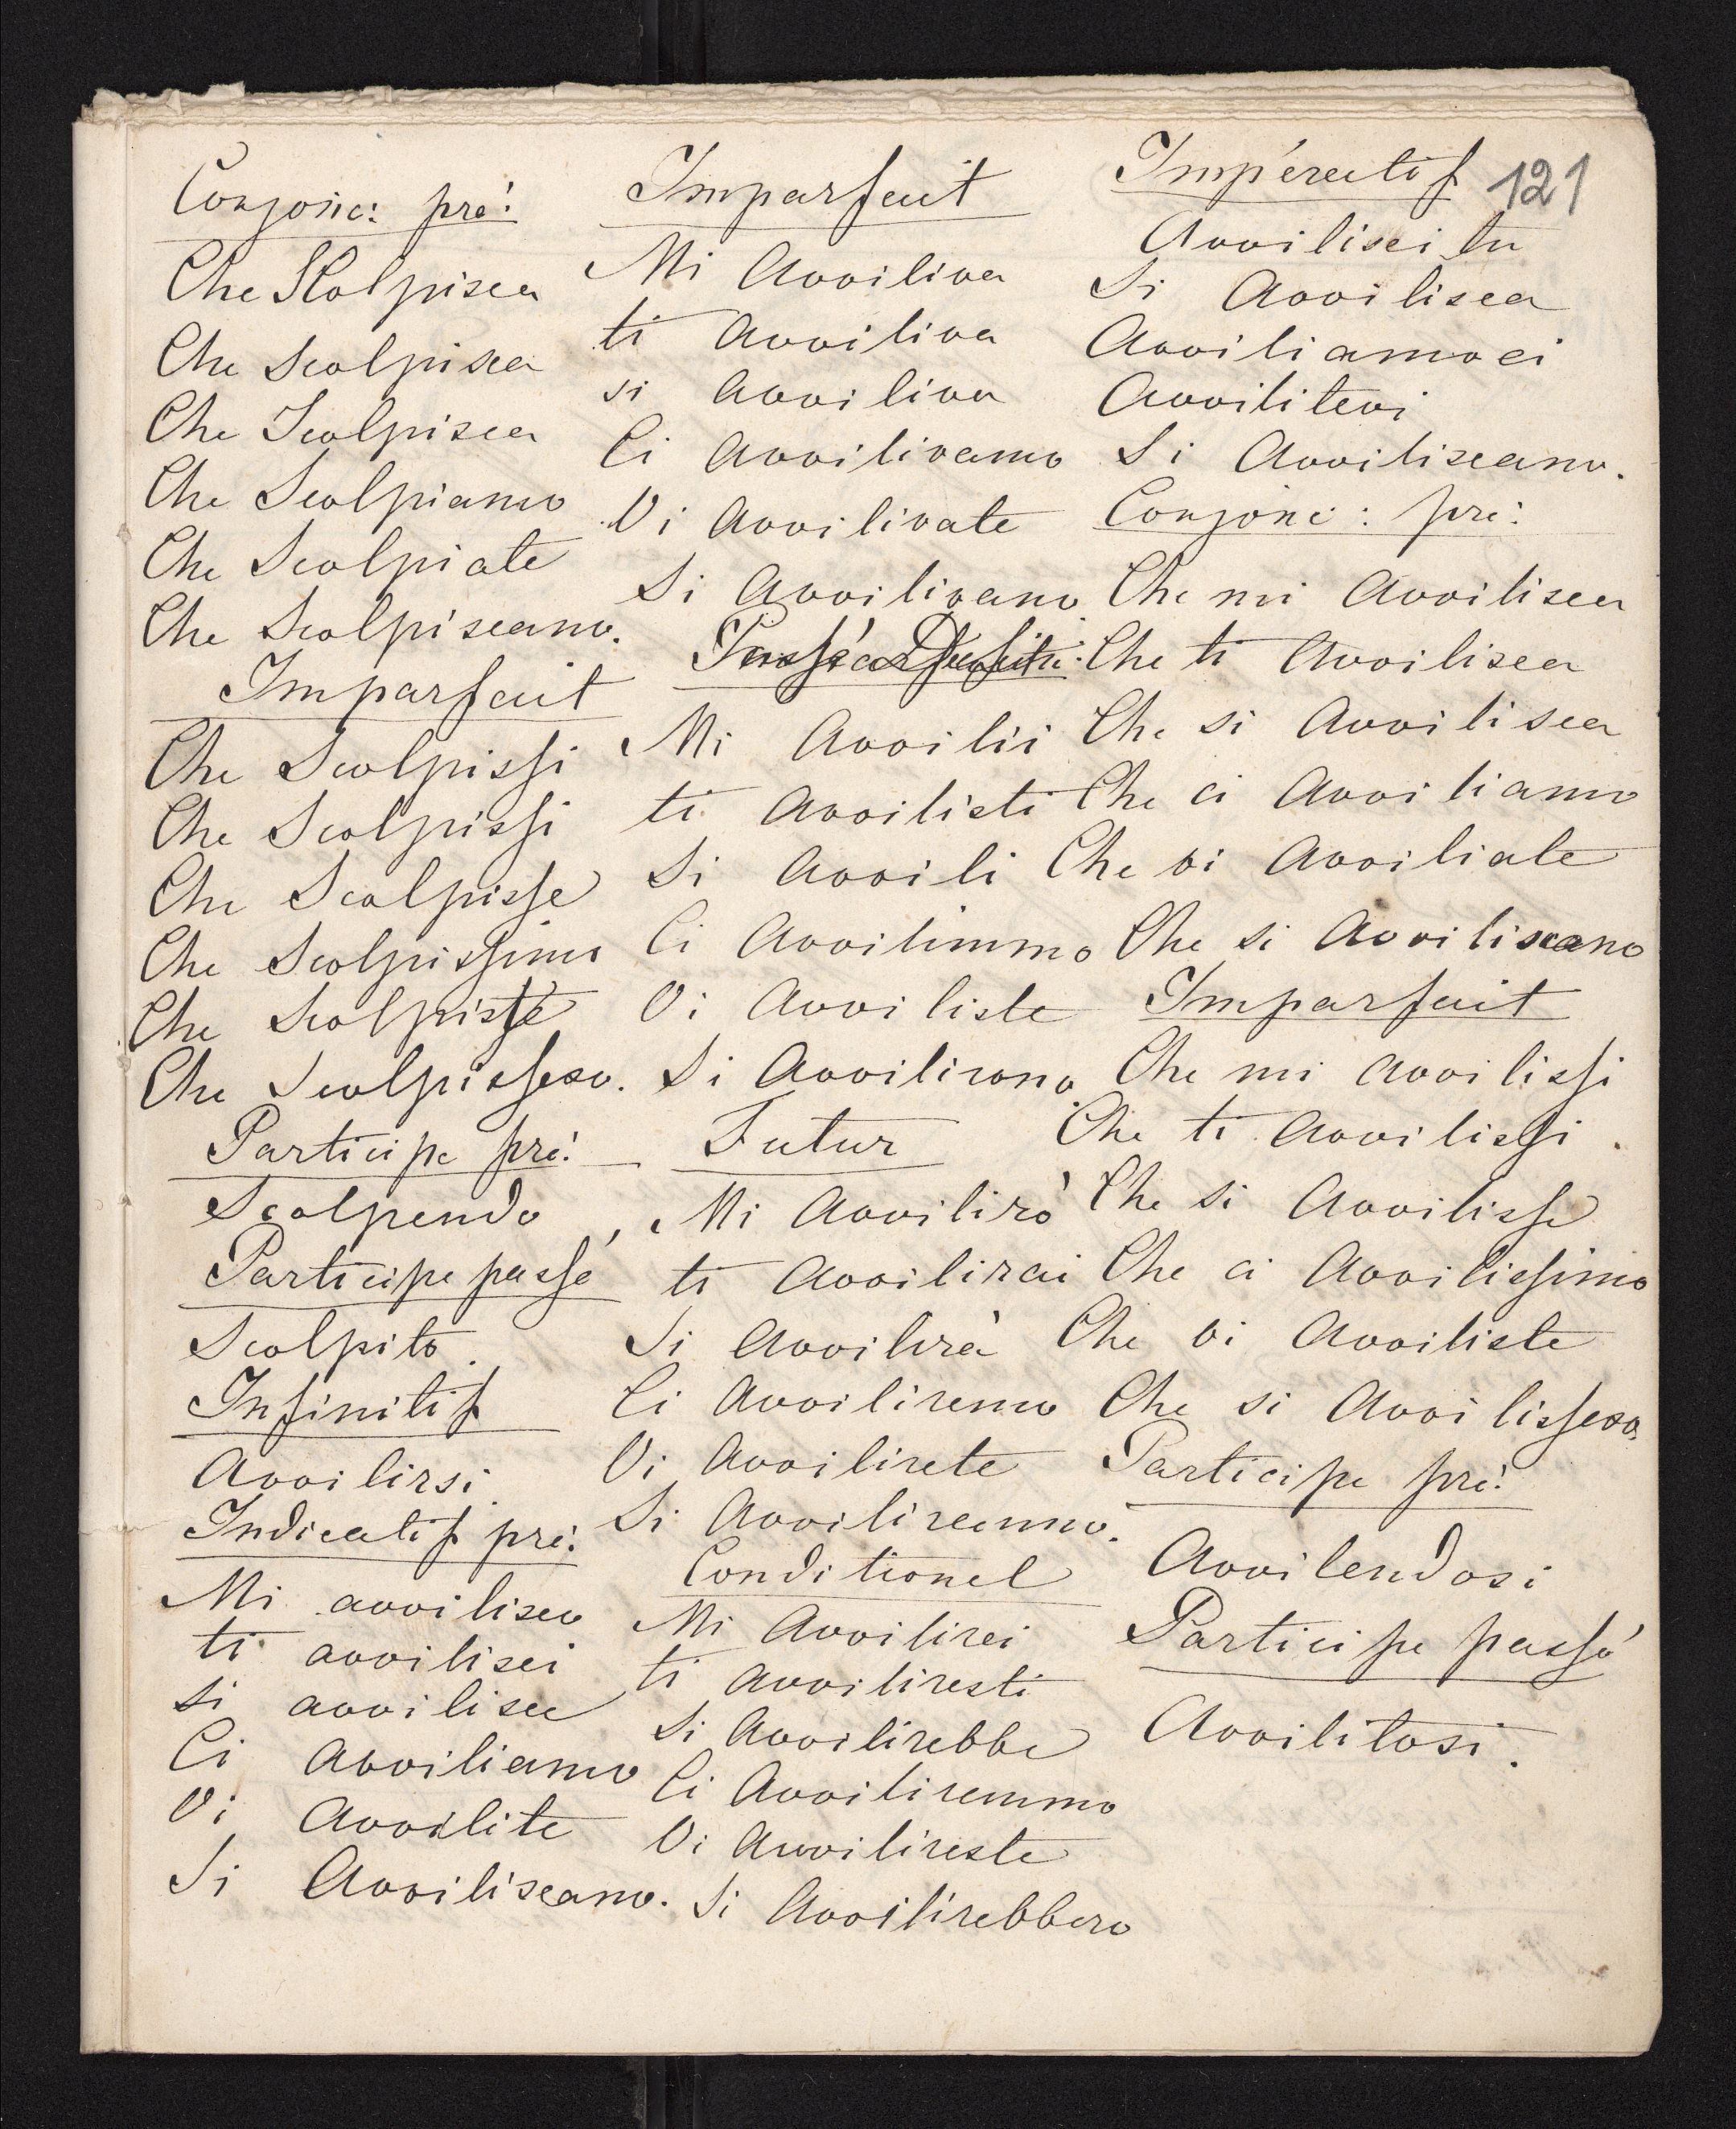 Conjonc: pré:
Che Scolpisca
Che Scolpisca
Che Scolpisca
Che Scolpiamo
Che Scolpiate
Che Scolpiscano.
Imparfait
Che Scolpissi
Che Scolpissi
Che Scolpisse
Che Scolpissimo
Che Scolpiste
Che Scolpissero.
Participe pré:
Scolpendo
Participe passé
Scolpito
Infinitif
Avvilirsi
Indicatif pré:
Mi avvilisco
ti avvilisci
si avvilisce
Ci Avviliamo
Vi Avvilite
Si Avviliscano.
Imparfait
Mi Avviliva
ti Avviliva
si Avviliva
Ci Avvilivamo
Vi Avvilivate
Si Avvilivano
Passé Défini:
Mi Avvilii
ti Avvilisti
Si Avvili
Ci Avvilimmo
Vi Avviliste
Si Avvilirono.
Futur
Mi Avvilirò
ti Avvilirai
Si Avvilirà
Ci Avviliremo
Vi Avvilirete
Si Avviliranno.
Conditionel
Mi Avvilirei
ti Avviliresti
Si Avvilirebbe
Ci Avviliremmo
Vi Avvilireste
Si Avvilirebbero
Impératif 121
Avvilisci tu
Si Avvilisca
Avviliamoci
Avvilitevi
Si Avviliscano.
Conjonc: pré:
Che mi Avvilisca
Che ti Avvilisca
Che si Avvilisca
Che ci Avviliamo
Che vi Avviliate
Che si Avviliscano
Imparfait
Che mi Avvilissi
Che ti Avvilissi.
Che Si Avvilisse
Che ci Avvilissimo
Che vi Avviliste
Che si Avvilissero
Participe pré:
Avvilendosi
Participe passé
Avvilitosi.